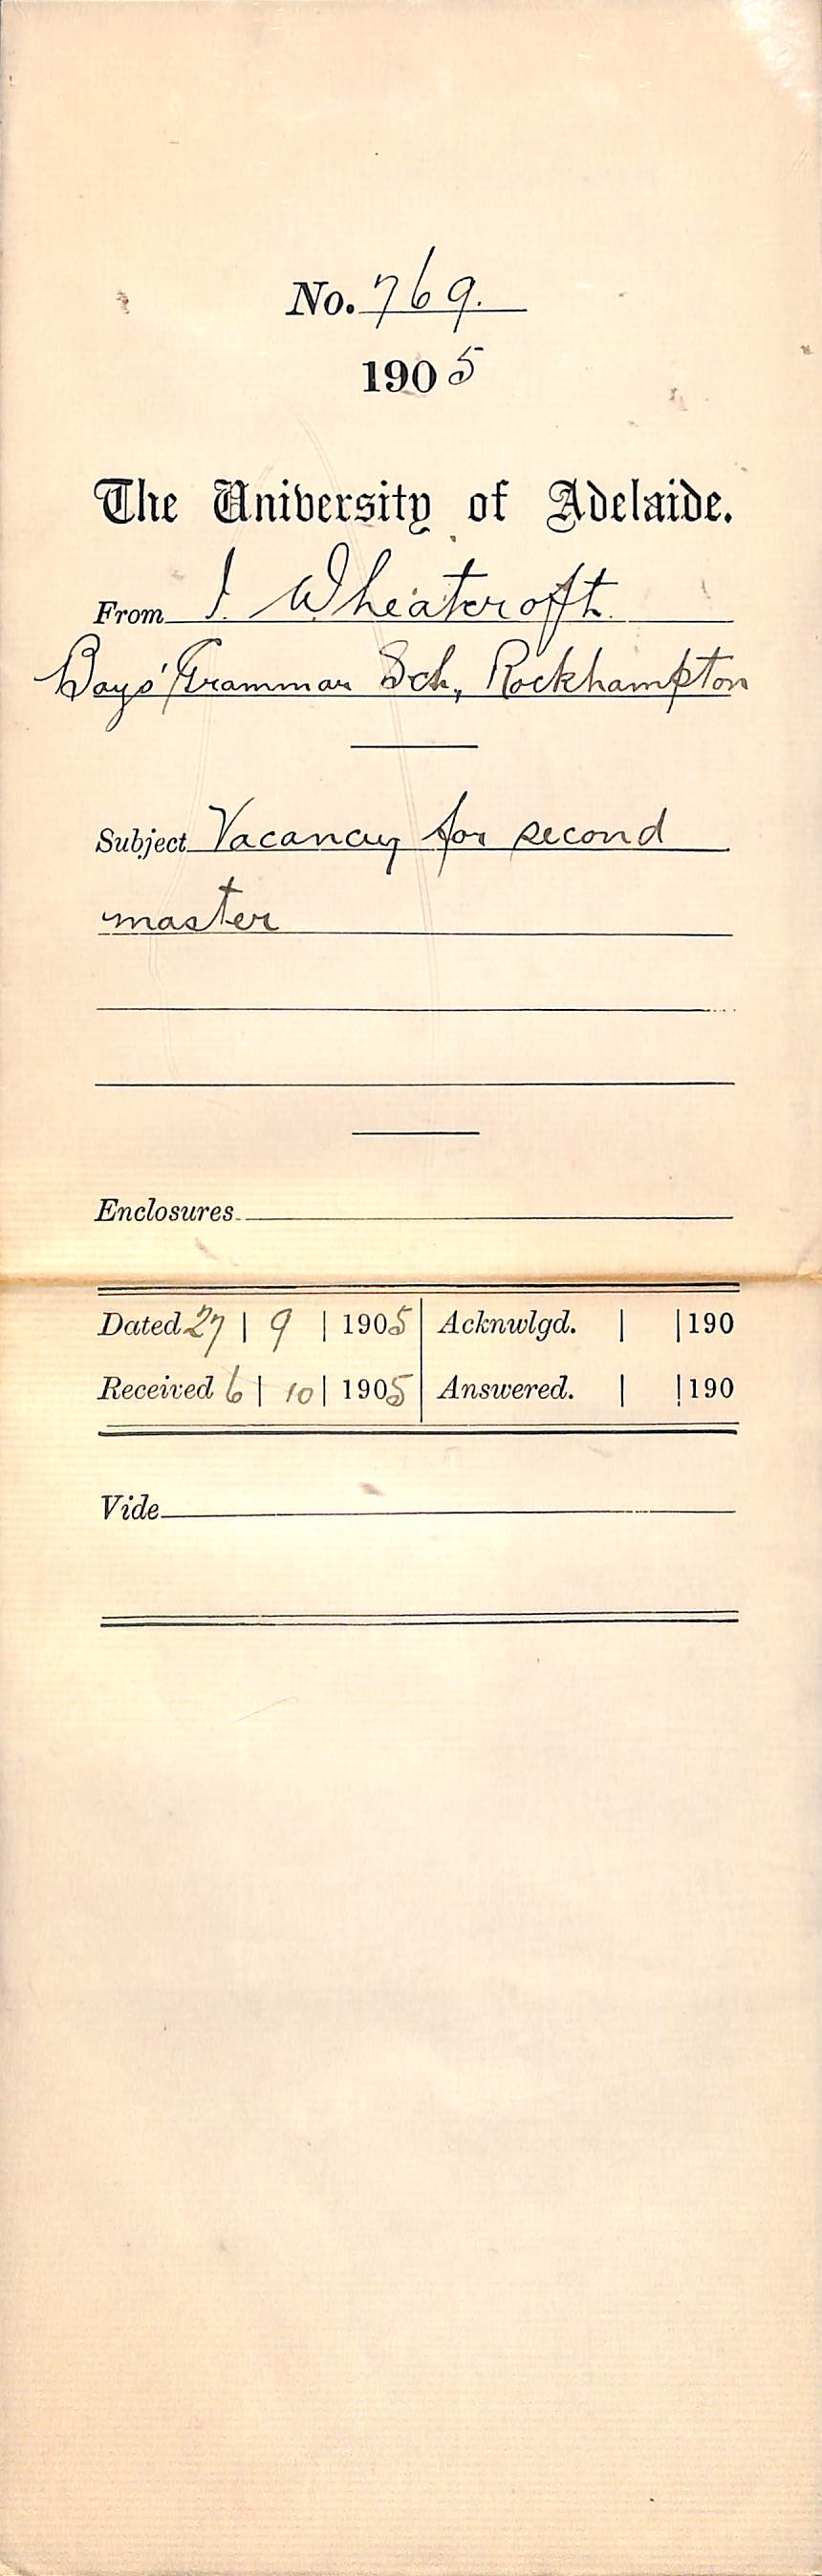 No. 769.
1905
The University of Adelaide.
From I. Wheatcroft.
Boys' Grammar Sch, Rockhampton
Subject Vacancy for second
master
Enclosures
Dated 27 | 9 | 1905 | Acknwlgd. | | 190
Received 6 | 10 | 1905 | Answered. | | 190
Vide